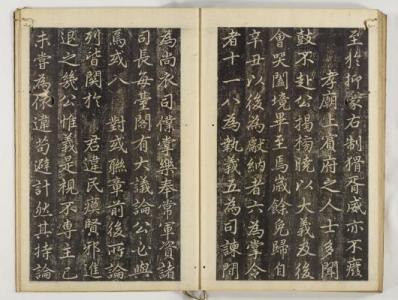 至於抑豪右制猾胥威亦不廢
孝廟上賓府之人士多聞
鼓不赴公揭榜曉以大義友後
會哭闔境畢至焉歲餘免歸自
辛丑以後為獻納者六為掌令
者十一八為執義五為司諫間
為尚衣司僕掌樂奉常軍資諸
司長每臺閣有大議論公必與
焉或入對或聯章前後所論
列皆關於君違民瘼賢邪進
退之幾公惟義是視不專主己
未嘗為依違苟避計然其持論